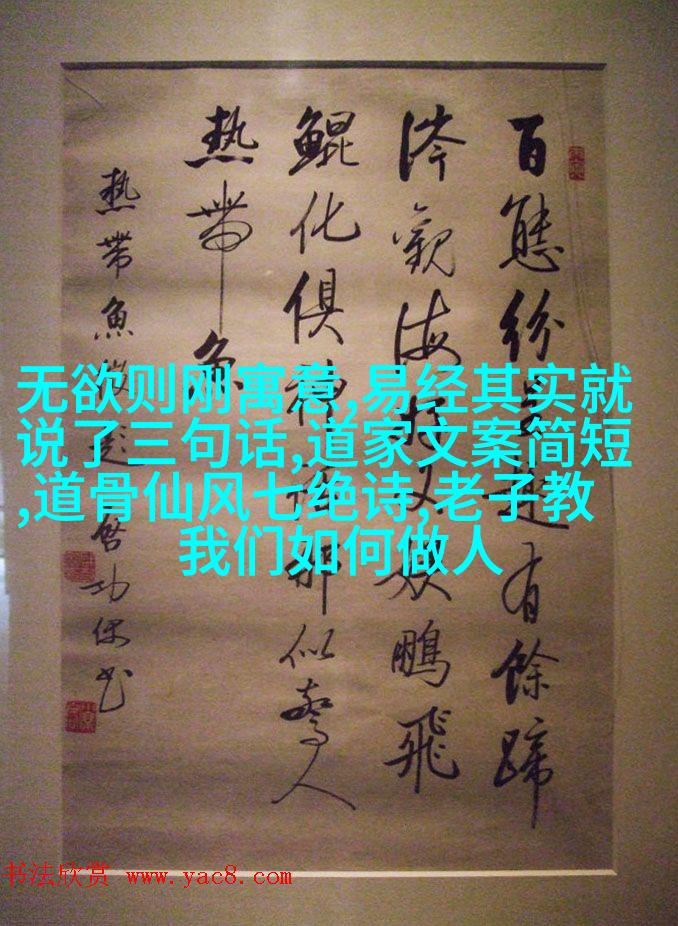 百態紛有餘蹄
涔觀海鵬飛
鯤化俱神那似驚人
熱帶魚
熱帶魚徵題 啓功書
无欲则刚寓意,易经其实就
说了三句话,道家文案简短
,道骨仙风七绝诗,老子教
我们如何做人
书法欣赏 www.yac8.com